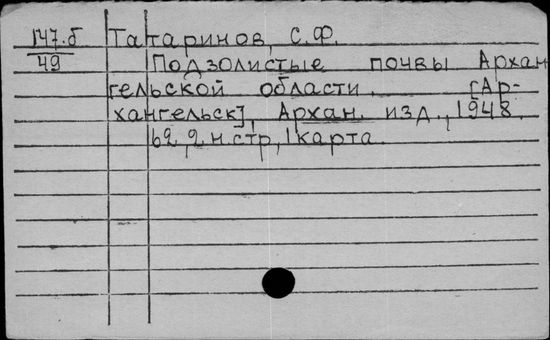 147.б Татаринов, С.Ф.
49 Подзолистые почвыАрхан
гельской области. [Ар-
хангельск], Архан. изд., 1948.
62, 2 н. стр, 1 карта.